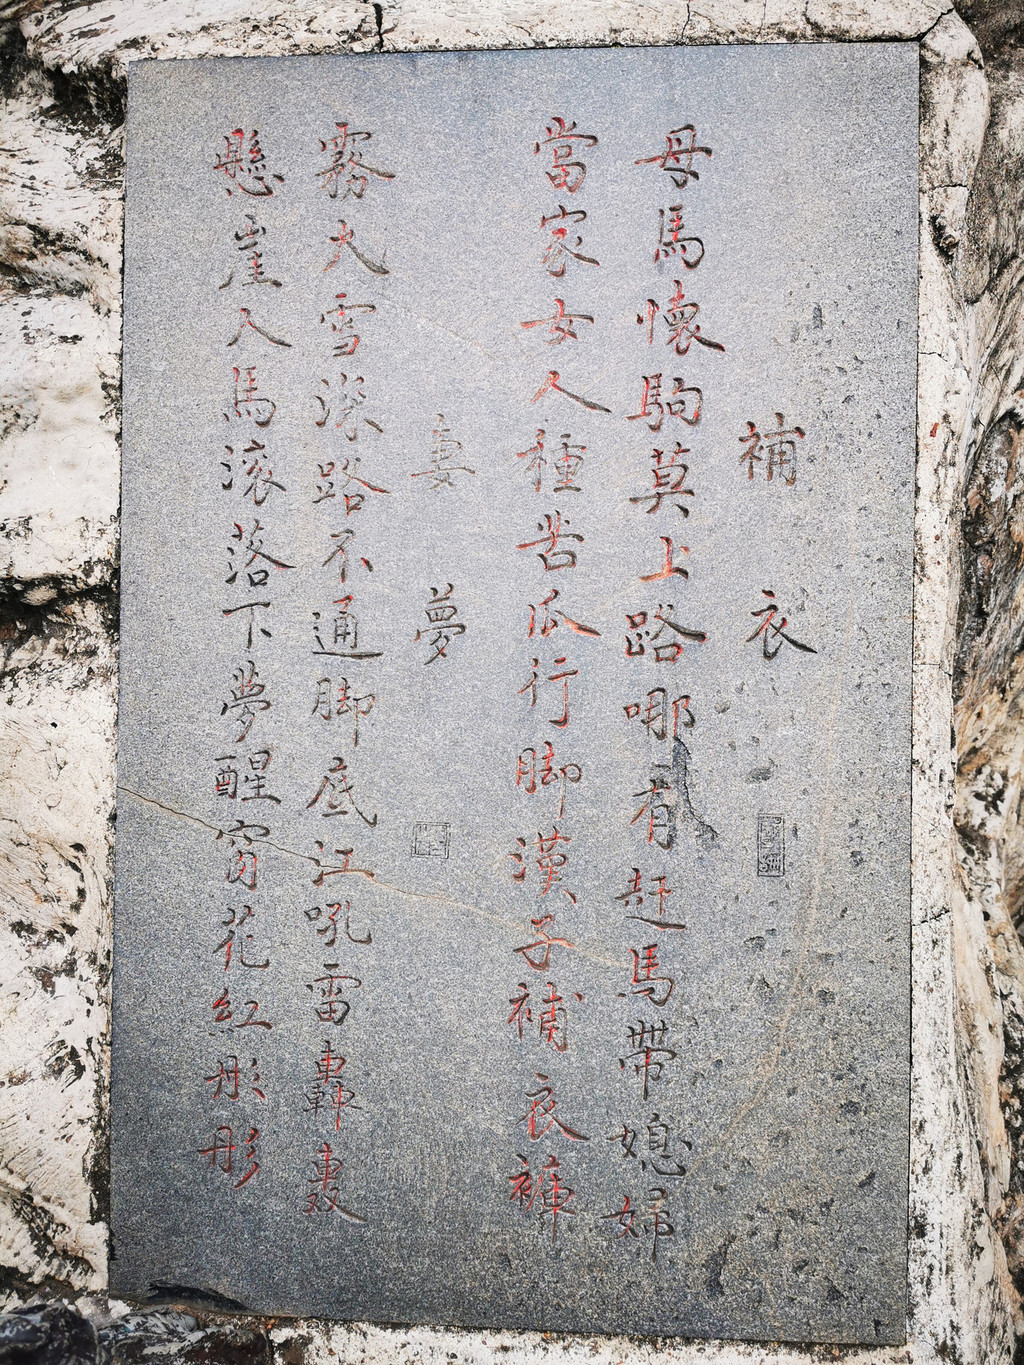 補衣
母馬懷駒莫上路哪有赶馬帶媳婦
當家女人種苦瓜行脚漢子補衣褲
妻夢
霧大雪深路不通脚底江吼雷轟轰
懸崖人馬滚落下夢醒窗花紅彤彤